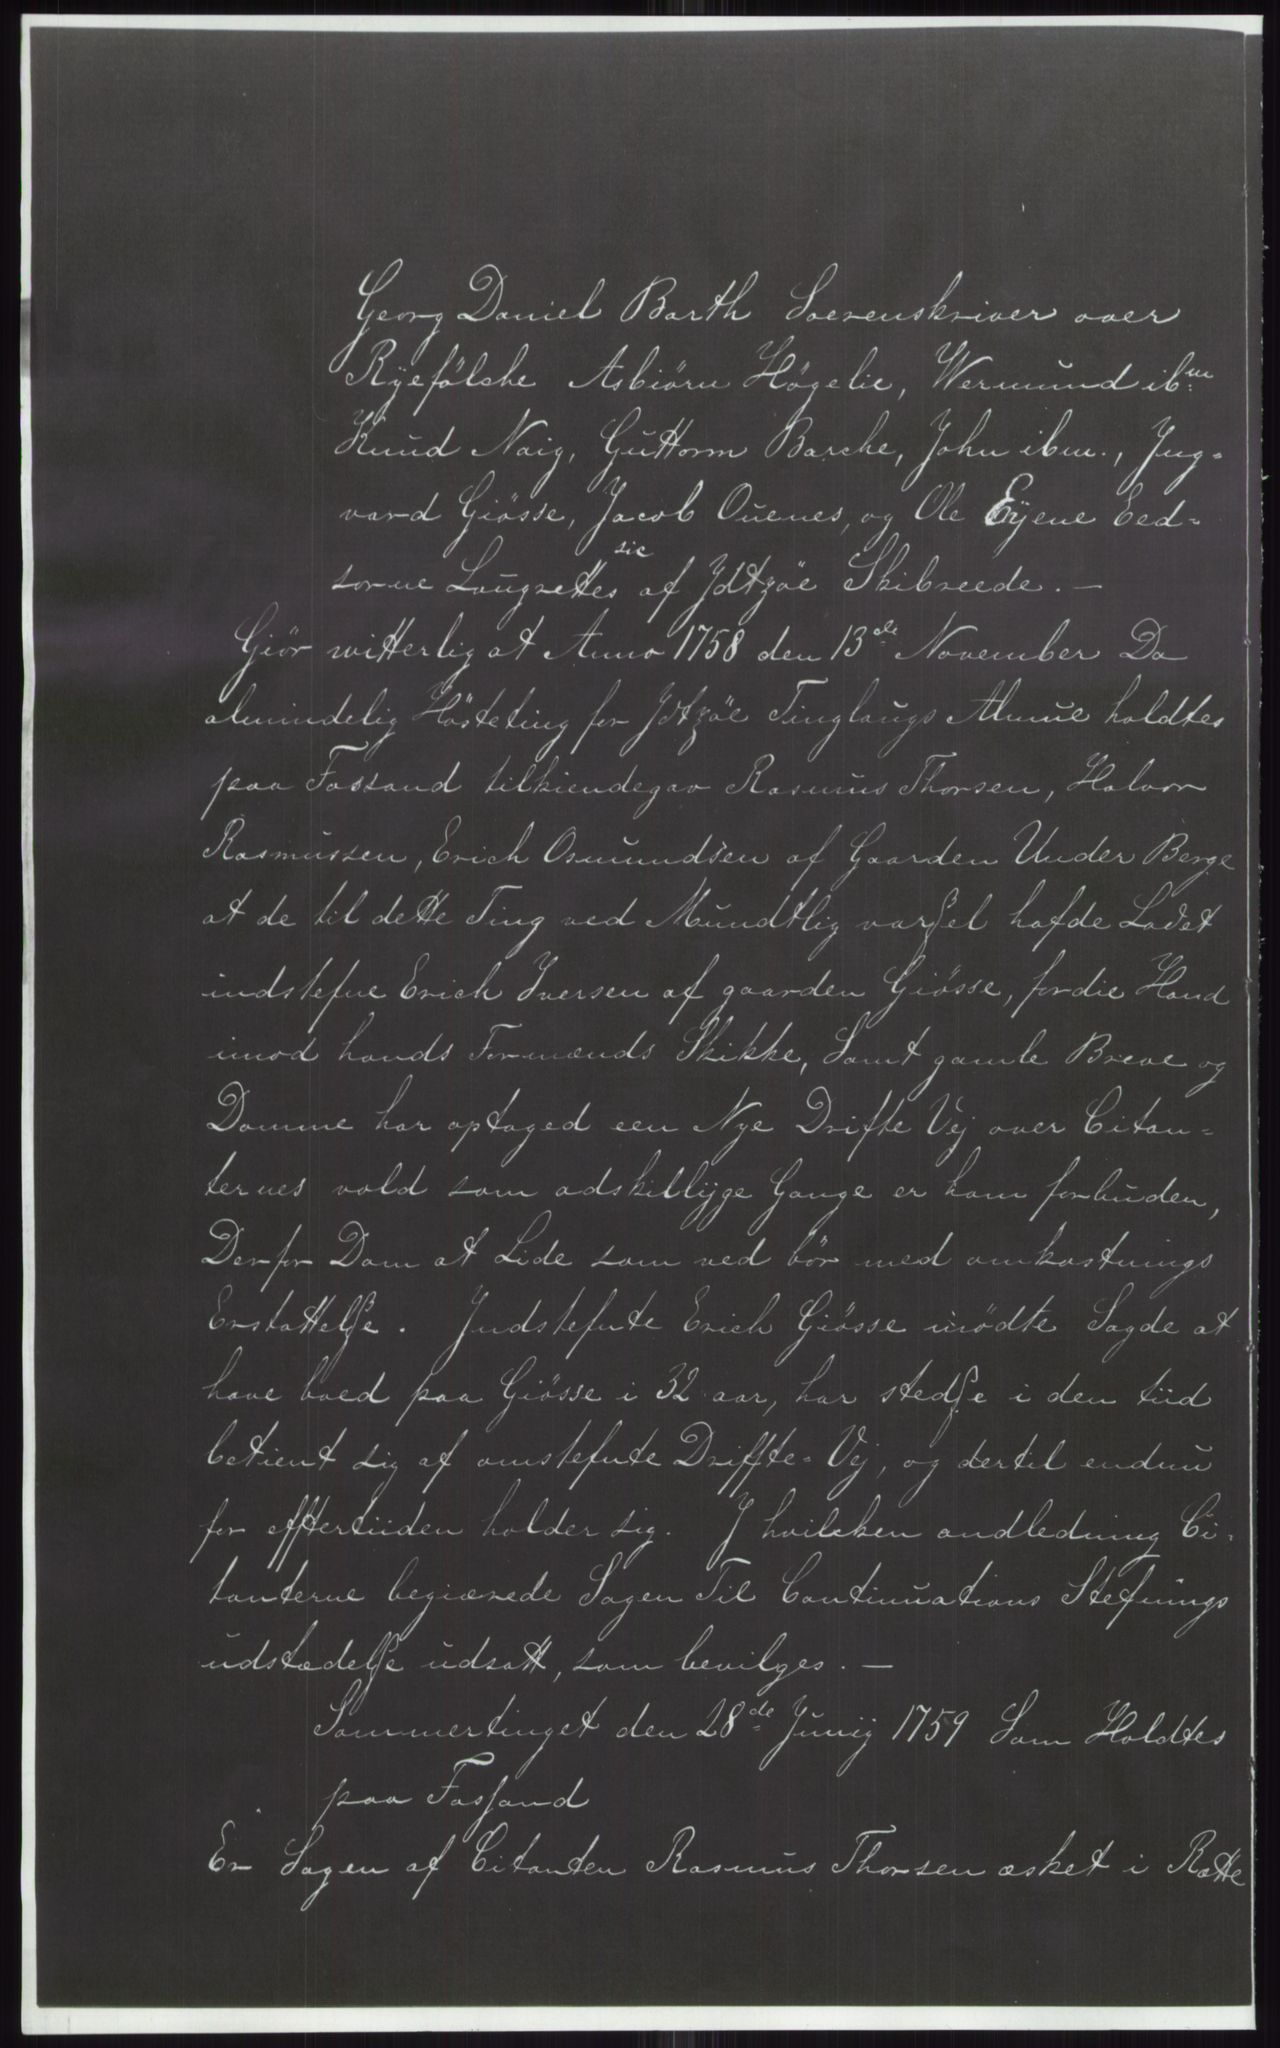 Georg Daniel Barth Soerenskriver over
Ryefölche Asbiörn Högelie, Wermund ibm
Knud Naig, Guttorm Barche, John ibm., Jng-
vard Giösse, Jacob Ouenes, og Ole Eÿene Eed-
sorne Laugrettes sic af Jdtzöe Skibreede. —
Giör witterlig at Anno 1758 den 13de November Da
almindelig Hösteting for Jdtzöe Tinglaugs Almue holdtes
paa Fossand tilkiendegav Rasmus Thorsen, Halvor
Rasmussen, Erich Osmundsen af Gaarden Under Berge
at de til dette Ting ved Mundtlig varßel hafde Ladet
indstefne Erich Iversen af gaarden Giösse, fordie Hand
imod hands Formænds Skikke, Samt gamle Breve og
Domme har optaged een Nye Drifte Vej over Citan-
ternes vold som adskillijge Gange er ham forbuden,
Derfor Dom at Lide som ved bör med omkostnings
Erstattelße. Jndstefnte Erich Giösse mödte Sagde at
have boed paa Giösse i 32 aar, har stedße i den tiid
betient sig af omstefnte Driffte-Vej, og dertil endnu
for efftertiiden holder sig. J hvilcken andledning Ci-
tanterne begiærede Sagen Til Continuations Stefnings
udstædelße udsatt, som bevilges. —
Sommertinget den 28de Junij 1759 Som Holdtes
paa Fossand
Er Sagen af Citanten Rasmus Thorsen æsket i Rætte